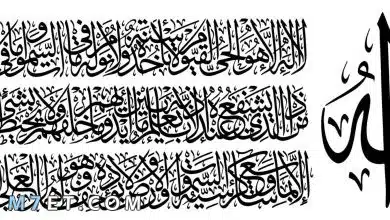 الله
لا إله إلا هو الحي القيوم لا تأخذه سنة ولا نوم له ما في السموات وما في
من ذا الذي يشفع عنده إلا بإذنه يعلم ما بين أيديهم وما خلفهم ولا يحيطون بشيء
إلا بما شاء وسع كرسيه السموات والأرض ولا يؤده حفظهما وهو العلي
M7ET.COM